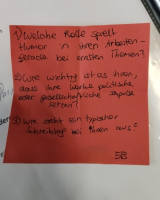 1) Welche Rolle spielt
Humor in Ihren Arbeiten -
gerade bei ernsten Themen?
2) Wie wichtig ist es Ihnen,
dass Ihre Werke politische
oder gesellschaftliche Impulse
setzen?
3) Wie sieht ein typischer
Schreibtag bei Ihnen aus?